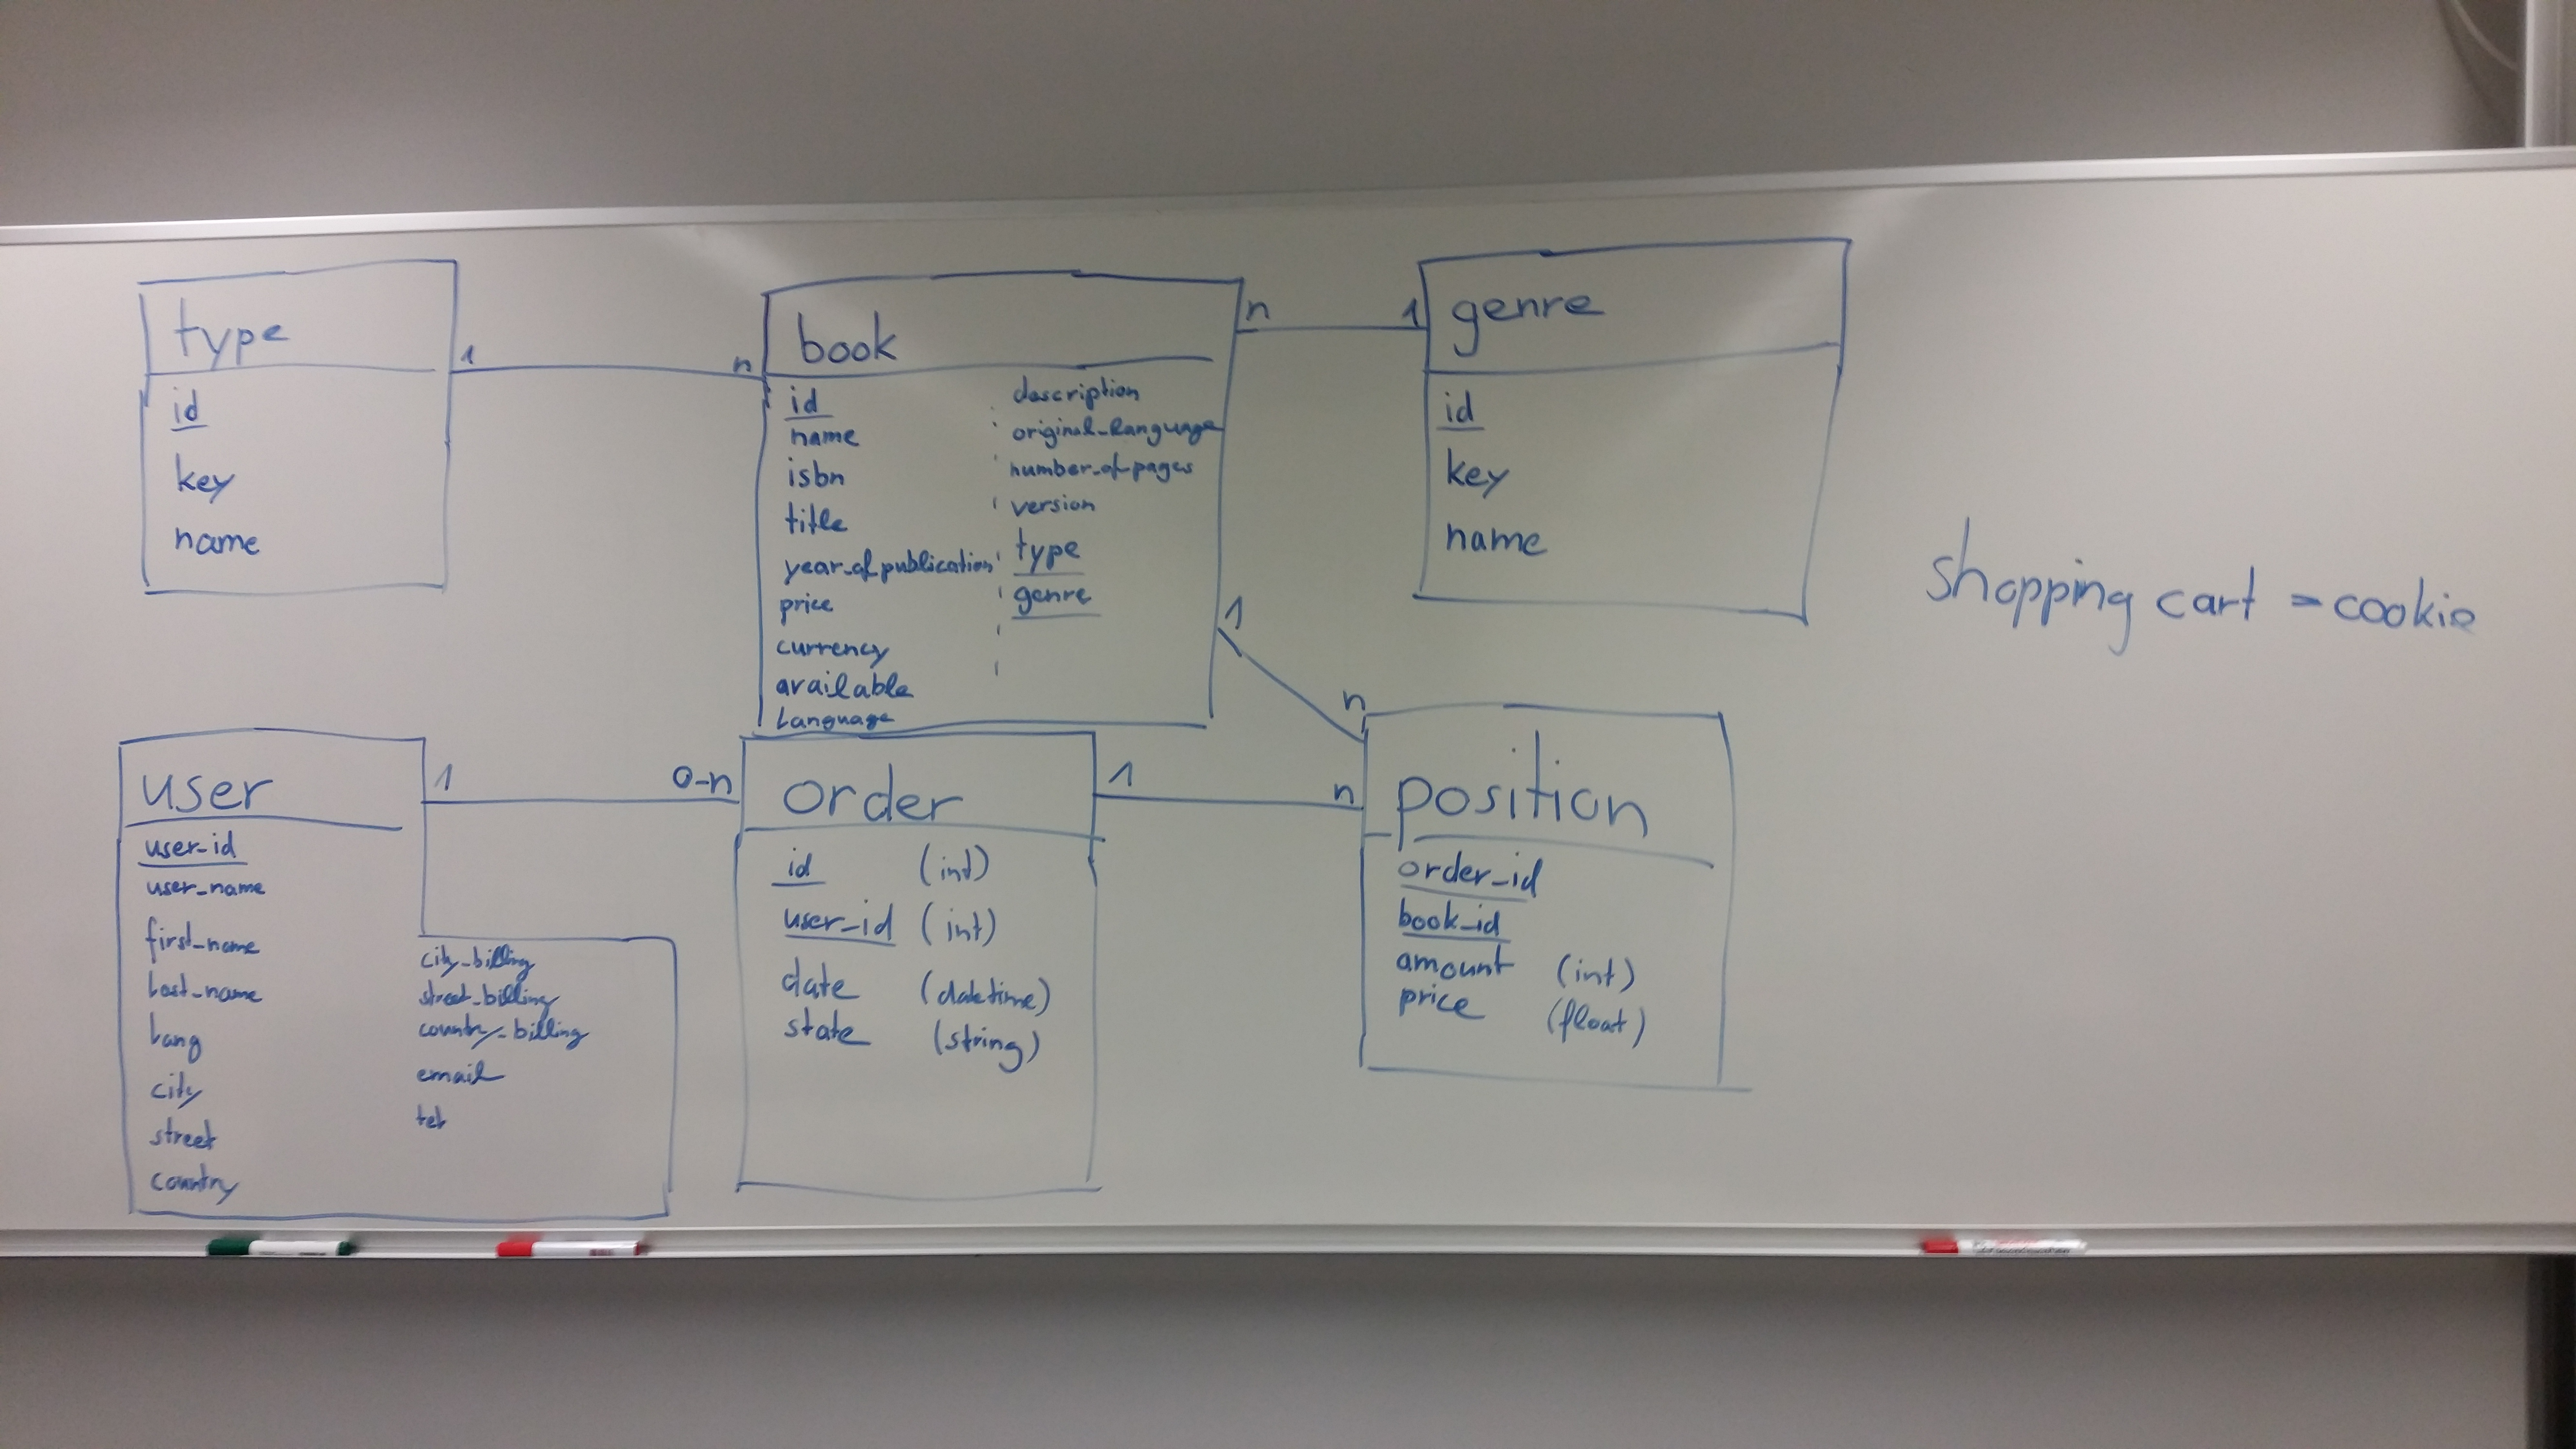 type
id
key
name
1
n
book
id
name
isbn
title
year_of_publication
price
currency
available
language
description
original_language
number_of_pages
version
type
genre
n
1
genre
id
key
name
shopping cart = cookie
1
n
user
user_id
user_name
first_name
last_name
lang
city
street
country
city_billing
street_billing
country_billing
email
tel
1
0-n
order
id (int)
user_id (int)
date (datetime)
state (string)
1
n
position
order_id
book_id
amount (int)
price (float)